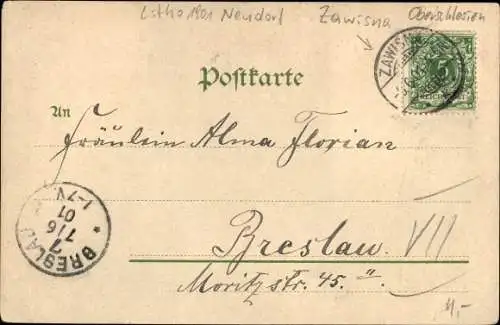 Litho 1901 Neudorf Zawisna Oberschlesien
ZAWISNA
5
REICHSPOST
Postkarte
An
Fräulein Alma Florian
Breslau VII
Moritzstr. 45. II.
BRESLAU
7
7/6
01
1-7N
*
1,-